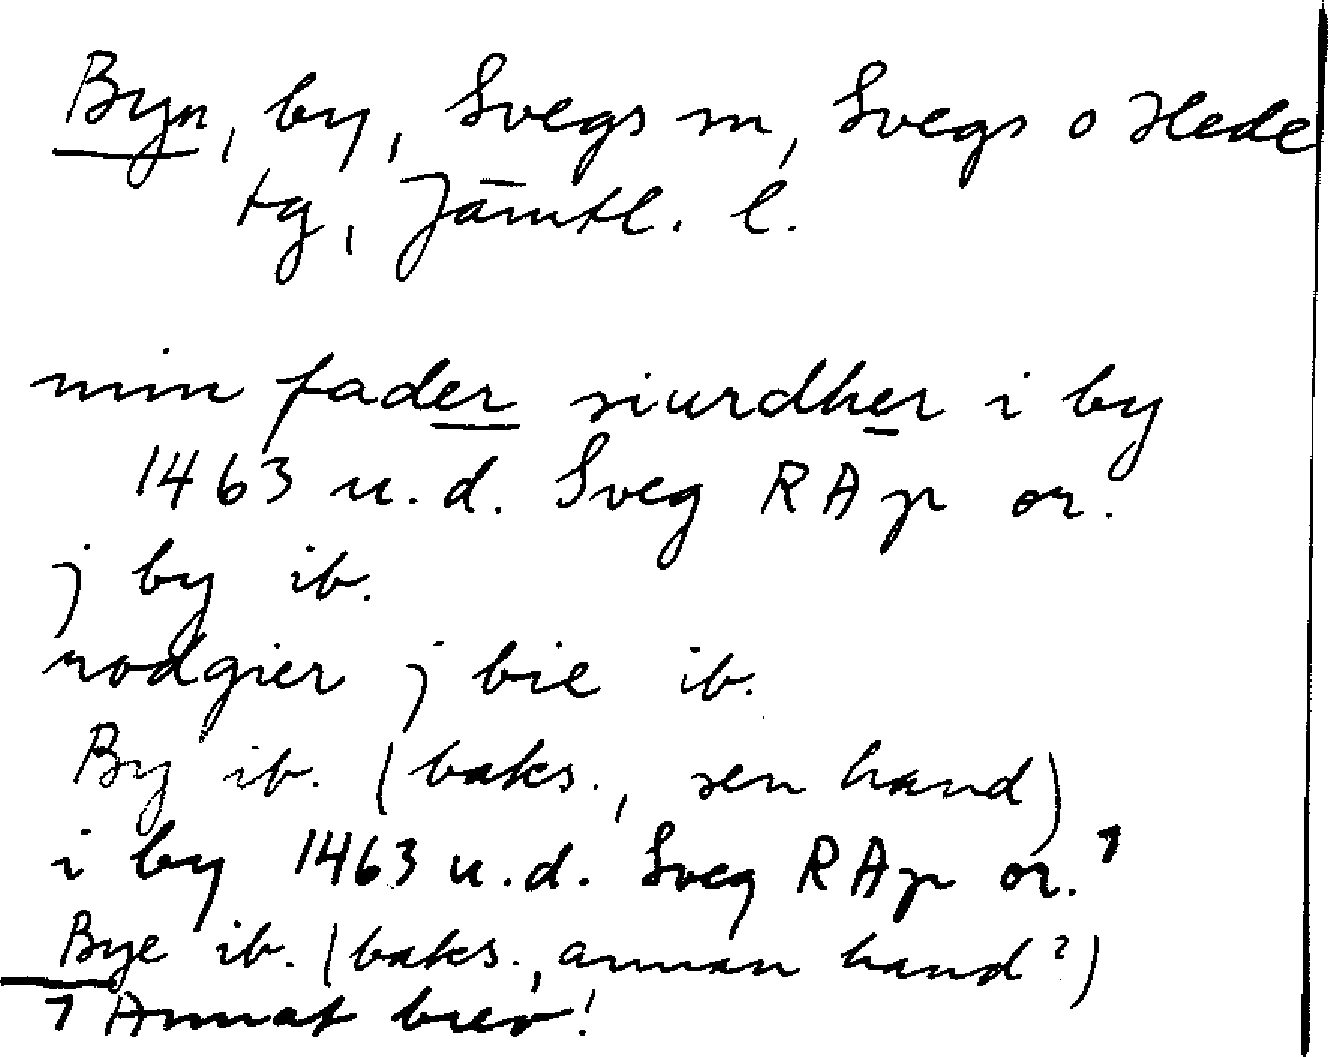 Byn, by, Svegs sn, Svegs o Hede
tg, Jämtl. l.
min fader siurdher i by
1463 u.d. Sveg RAp or.
j by ib.
rodgier j bie ib.
By ib. (baks., sen hand)
i by 1463 u.d. Sveg RAp or.1
Bye ib. (baks., annan hand?)
1 Annat brev!